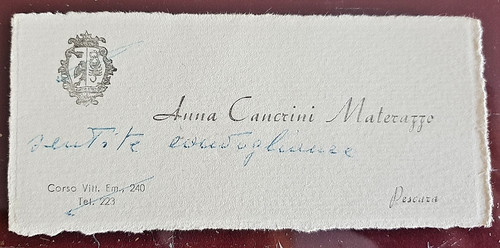 Anna Cancrini Materazzo
sentite condoglianze
Corso Vitt. Em., 240
Tel. 223
Pescara